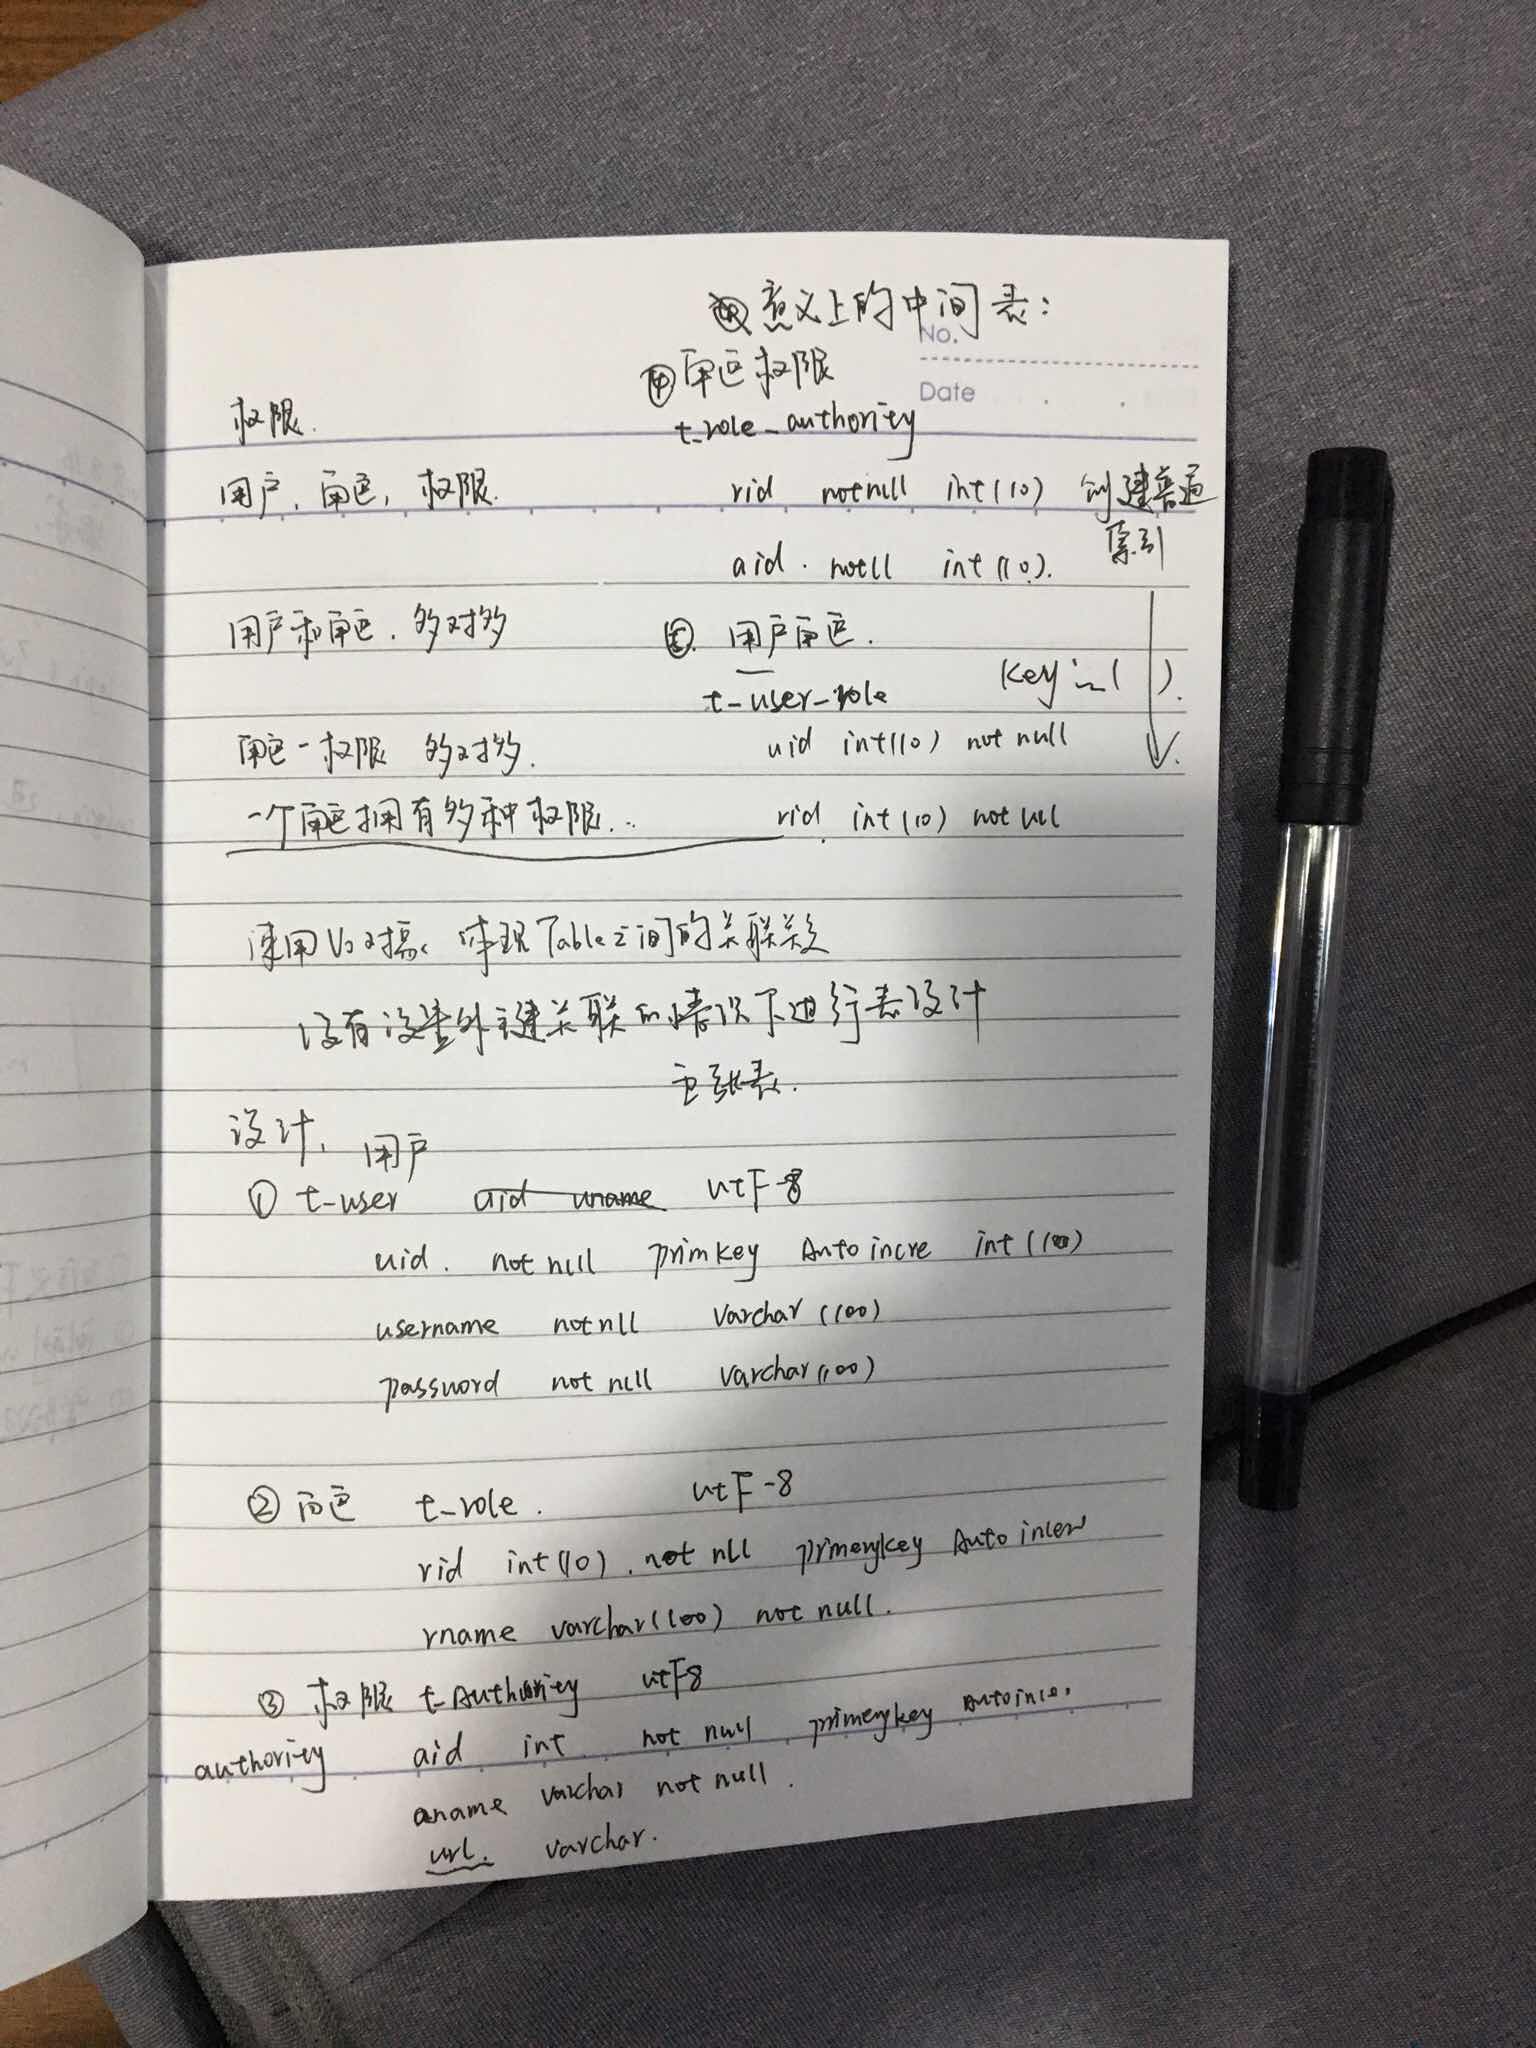 意义上的中间表:
No.
④ 角色权限
Date
t_role_authority
权限.
用户, 角色, 权限.
rid notnull int(10) 创建普通
索引
aid. notll int(10).
用户和角色. 多对多
⑤. 用户角色.
key in( ).
t_user_role
角色-权限 多对多.
uid int(10) not null
一个角色拥有多种权限...
rid. int(10) not ull
使用Vo对象 体现Table之间的关联关系
没有设置外键关联的情况下进行表设计
五张表.
设计, 用户
① t-user uid uname utF-8
uid. not null primkey Auto incre int(10)
username notnll varchar(100)
password not null varchar(100)
② 角色 t_role. utF-8
rid int(10). not nll primerykey Auto incer
rname varchar(100) not null.
③ 权限 t_Authority utF8
authority aid int not null primerykey Autoincr.
aname varchar not null.
url. varchar.